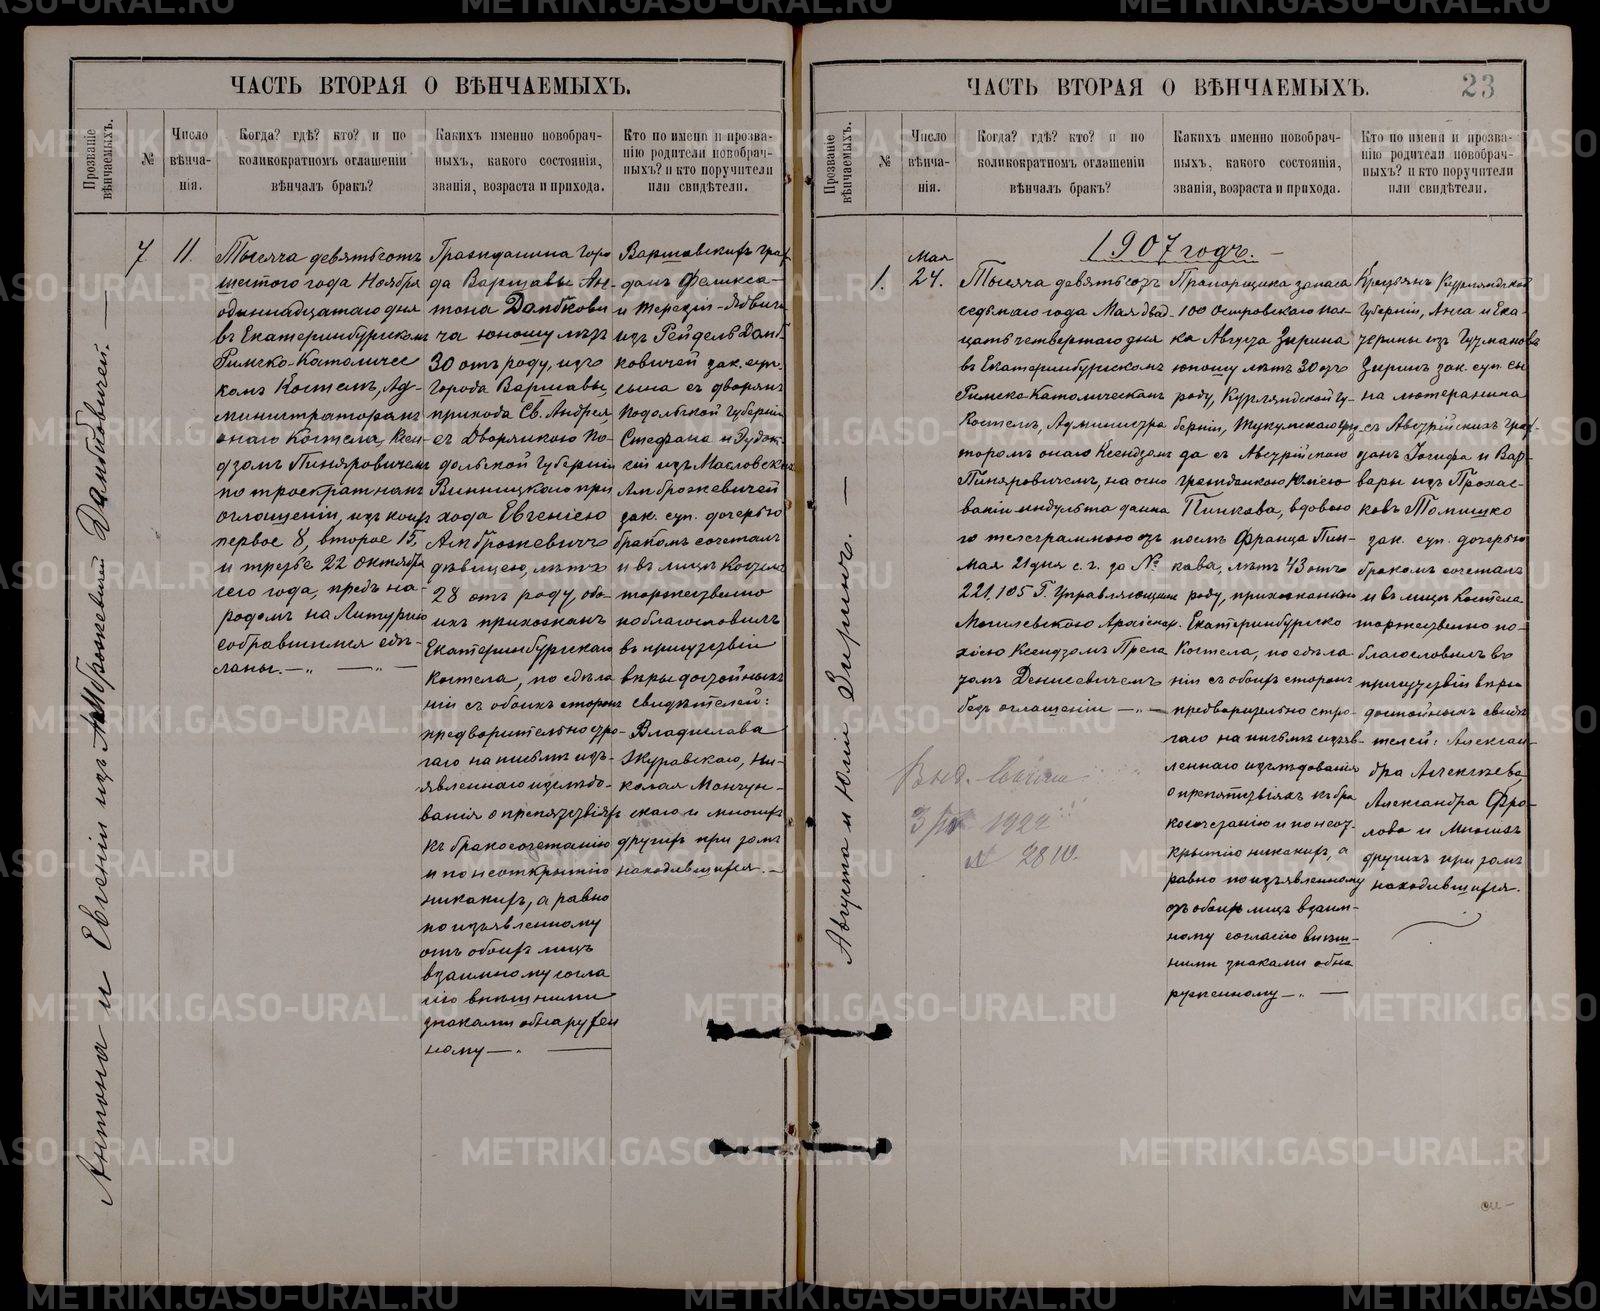 ЧАСТЬ ВТОРАЯ О ВѢНЧАЕМЫХЪ.
Прозваніе вѣнчаемыхъ.
№
Число вѣнча-нія.
Когда? гдѣ? кто? и по
коликократномъ оглашеніи
вѣнчалъ бракъ?
Какихъ именно новобрач-
ныхъ, какого состоянія,
званія, возраста и прихода.
Кто по имени и прозва-
нію родители новобрач-
ныхъ? и кто поручители
или свидѣтели.
Антона и Евгеніи изъ Амброжевичей Дамбковичей.
7
11
Тысяча девятьсотъ
шестого года Ноября
одиннадцатаго дня
въ Екатеринбургскомъ
Римско-Католичес
комъ Костелѣ, Ад-
министраторомъ
онаго Костела, Ксен-
дзомъ Пиняровичемъ
по троекратномъ
оглашеніи, изъ коихъ
первое 8, второе 15,
и третье 22 октября
сего года, предъ на-
родомъ на Литургію
собравшимся сдѣ-
ланы.
Гражданина горо
да Варшавы Ан-
тона Дамбкови
ча юношу лѣтъ
30 отъ роду, изъ
города Варшавы,
прихода Св. Андрея,
съ Дворянкою По-
дольской Губерніи
Винницкаго при
хода Евгеніею
Амброжевичъ
дѣвицею, лѣтъ
28 отъ роду, обо-
ихъ прихожанъ
Екатеринбургскаго
Костела, по сдѣла
ніи съ обоихъ сторонъ
предварительно стро-
гаго на письмѣ изъ-
явленнаго изслѣдо-
ванія о препятствіяхъ
къ бракосочетанію
и по неоткрытію
никакихъ, а равно
по изъявленному
отъ обоихъ лицъ
взаимному согла
сію внѣшними
знаками обнаружен
ному
Варшавскихъ граж
данъ Феликса
и Терезіи-Ядвиги
изъ Рейдель Дамб-
ковичей зак. суп.
сына съ дворянъ
Подольской Губерніи
Стефана и Эудок-
сіи изъ Масловскихъ
Амброжевичей
зак. суп. дочерью
бракомъ сочеталъ
и въ лицѣ Костела
торжественно
поблагословилъ
въ присутствіи
вѣры достойныхъ
свидѣтелей:
Владислава
Журавскаго, Ни-
колая Мончун-
скаго и многихъ
другихъ при томъ
находившихся.
ЧАСТЬ ВТОРАЯ О ВѢНЧАЕМЫХЪ.
23
Прозваніе вѣнчаемыхъ.
№
Число вѣнча-нія.
Когда? гдѣ? кто? и по
коликократномъ оглашеніи
вѣнчалъ бракъ?
Какихъ именно новобрач-
ныхъ, какого состоянія,
званія, возраста и прихода.
Кто по имени и прозва-
нію родители новобрач-
ныхъ? и кто поручители
или свидѣтели.
1907 годъ.
Августа и Юліи Зиринъ.
1.
Мая
24.
Тысяча девятьсотъ
седьмаго года Мая двад-
цать четвертаго дня
въ Екатеринбургскомъ
Римско-Католическомъ
Костелѣ, Администра
торомъ онаго Ксендзомъ
Пиняровичемъ, на осно
ваніи индульта даннa
го телеграммою отъ
мая 21 дня с. г. за №
221.105 Г. Управляющимъ
Могилевскою Архіепар.
хіею Ксендзомъ Прела
томъ Денисевичемъ
безъ оглашеніи
Прапорщика запаса
100 Островскаго пол-
ка Августа Зирина
юношу лѣтъ 30 отъ
роду, Курляндской гу-
берніи, Тукумскаго уѣз-
да съ Австрійскою
гражданкою Юліею
Пинкава, вдовою
послѣ Франца Пин-
кава, лѣтъ 43 отъ
роду, прихожанкою
Екатеринбургско
Костела, по сдѣла
ніи съ обоихъ сторонъ
предварительно стро-
гаго на письмѣ изъяв-
леннаго изслѣдованія
о препятствіяхъ къ бра
косочетанію и по неот-
крытію никакихъ, а
равно по изъявленному
отъ обоихъ лицъ взаим-
ному согласію внѣш-
ними знаками обна
руженному
Крестьянъ Курляндской
Губерніи, Анса и Ека-
терины изъ Гутманова
Зиринъ зак. суп. сы
на лютеранина
съ Австрійскихъ граж-
данъ Іосифа и Вар-
вары изъ Прохас-
ковъ Томишко
зак. суп. дочерью
бракомъ сочеталъ
и въ лицѣ Костела
торжественно по-
благословилъ въ
присутствіи вѣры
достойныхъ свидѣ
телей: Алексан-
дра Алексѣева,
Александра Фро-
лова и многихъ
другихъ при томъ
находившихся.
1922
№ 2810.
METRIKI.GASO-URAL.RU